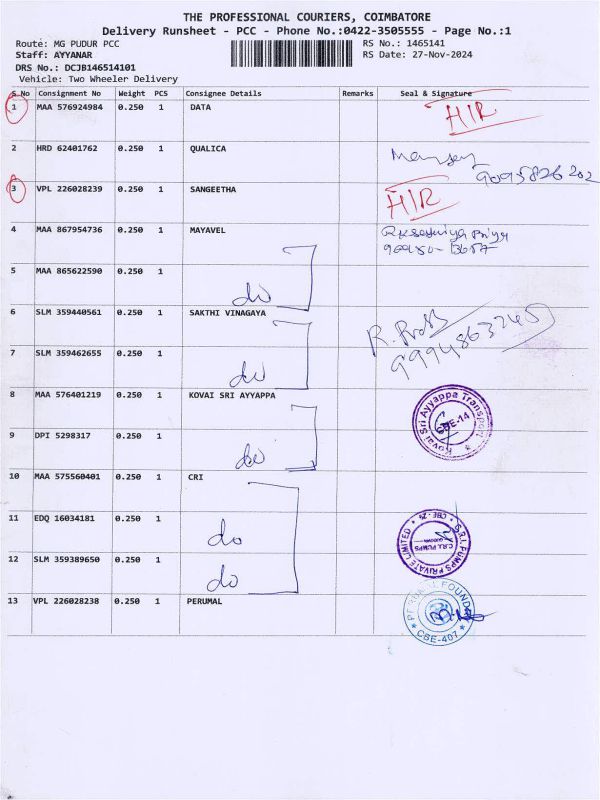 THE PROFESSIONAL COURIERS, COIMBATORE
Delivery Runsheet - PCC - Phone No.:0422-3505555 - Page No.:1
Route: MG PUDUR PCC RS No.: 1465141
Staff: AYYANAR RS Date: 27-Nov-2024
DRS No.: DCJB146514101
Vehicle: Two Wheeler Delivery
S No Consignment No Weight PCS Consignee Details Remarks Seal & Signature
1 MAA 576924984 0.250 1 DATA HIR
2 HRD 62401762 0.250 1 QUALICA
9095826202
3 VPL 226028239 0.250 1 SANGEETHA HIR
4 MAA 867954736 0.250 1 MAYAVEL
5 MAA 865622590 0.250 1 do
6 SLM 359440561 0.250 1 SAKTHI VINAGAYA
9994863245
7 SLM 359462655 0.250 1 do
8 MAA 576401219 0.250 1 KOVAI SRI AYYAPPA
Kovai Sri Ayyappa Transport
CBE-14
9 DPI 5298317 0.250 1 do
10 MAA 575560401 0.250 1 CRI
11 EDQ 16034181 0.250 1 do
PUMPS PRIVATE LIMITED
12 SLM 359389650 0.250 1 do
13 VPL 226028238 0.250 1 PERUMAL
CBE-407